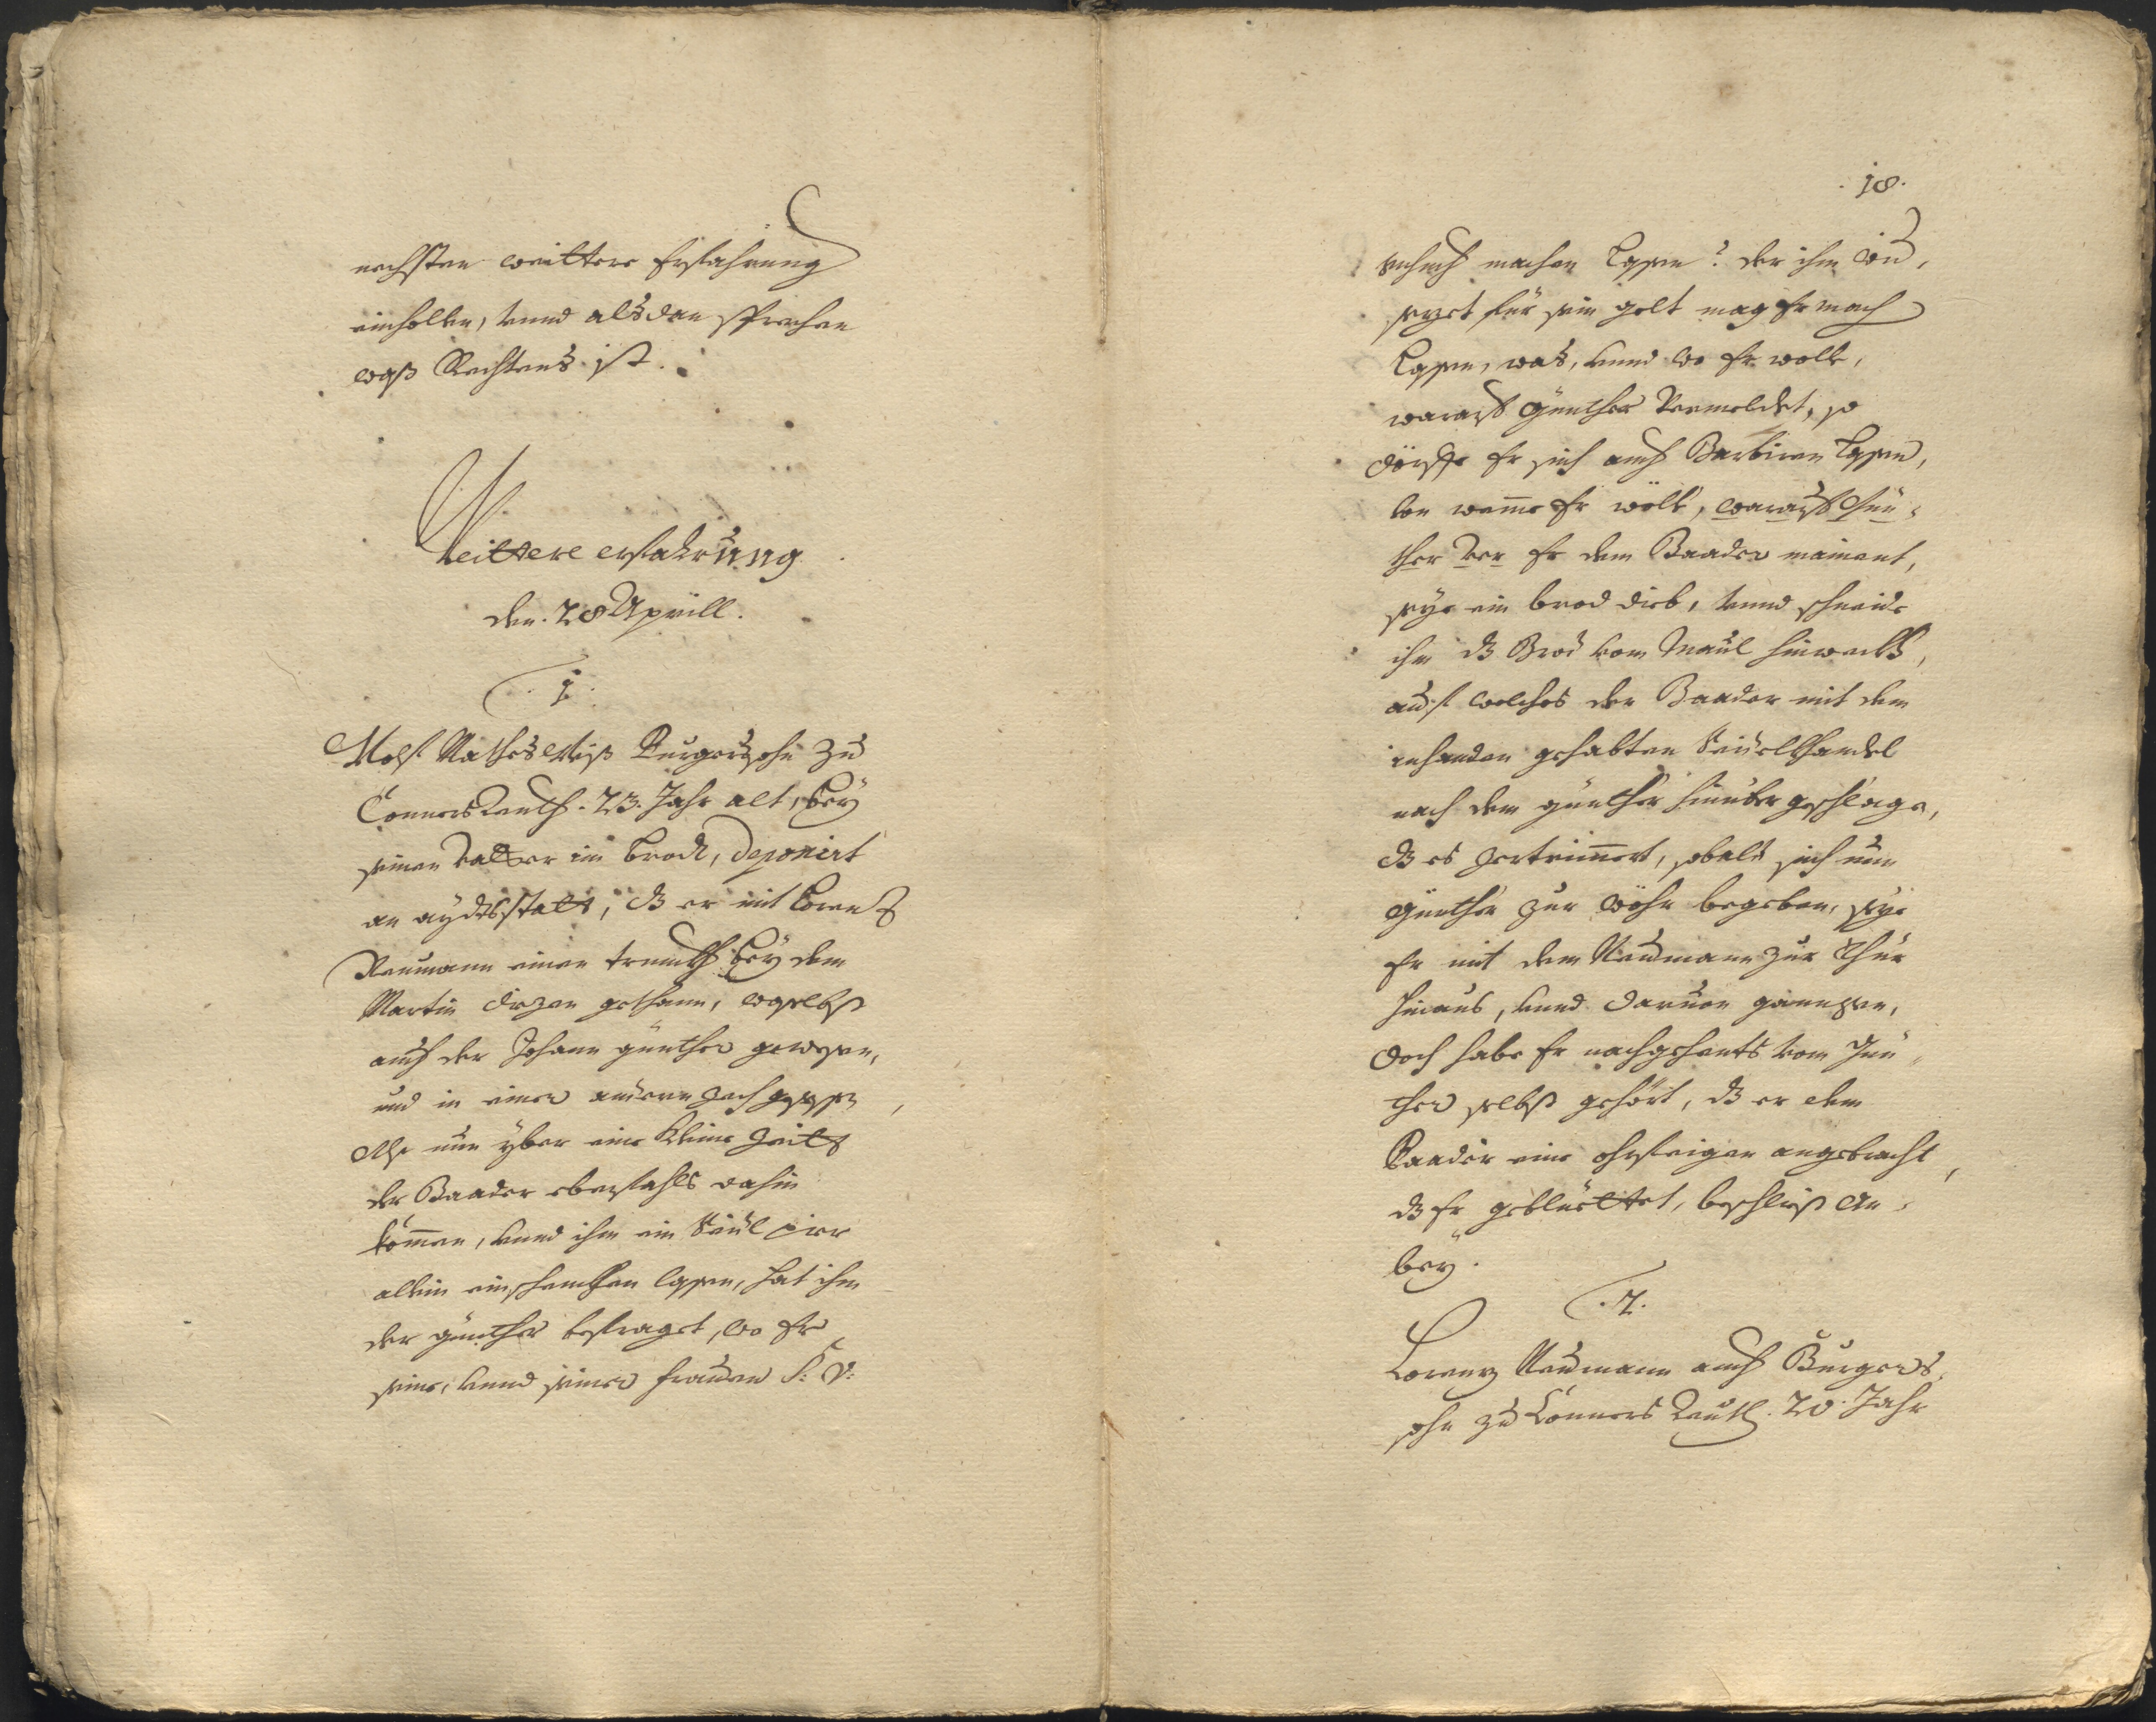 nechsten weittere Erfahrung
einhollen, vnnd alsdan sprechen
waß Rechtens ist.
Weittere erfahrung
den. 28 Aprill.
.1.
Wolf Mathes Weiß Burgerssohn zu
Connersreuth. 23. Jahr alt, bey
seinen vatter im brodt, deponirt
an aydtsstatt, dz er mit Lorentz
Neumann einen trunckh bey dem
Martin gethann, woselbst
auch der Johann günther gewesen,
und in einer andern zech gesessen,
Alß nun yber eine kleine Zeitt
der Baader ebenfahls dahin
kommen, vnnd ihm ein Seidl pier
allein einschenckhen lassen, hat ihm
der günther befraget, wo Er
seine, vnnd seiner frauen S: V:
.18.
schuch machen lassen? der ihm wid,
sezet für sein gelt mag Er mach
lassen, was, vnnd wo Er wolle,
warauf günther Vermeldet, so
dörffe Er sich auch Barbiren lassen,
von weme Er wölle, warauf Gün-
ther der Er dem Baader mainent,
seye ein brod dieb, vnnd schneide
ihm dz Brod vom Maul hinweckh,
auf welches der Baader mit dem
inhanden gehabten Seidelkandel
nach dem günther hinüber geschlagen,
dz es zertrimmert, sobald sich nun
günther zur wöhr begeben, seye
Er mit dem Neumann zur Thür
hinaus, vnnd daruon gangen,
doch habe Er nachgehents vom Gün-
ther selbst gehört, dz er dem
Baader eine ohrfeigen angebracht,
dz Er geblüettet, beschliest an-
bey.
.2.
Lorenz Neumann auch Burgers,
sohn zu Conners Reuth. 20. Jahr